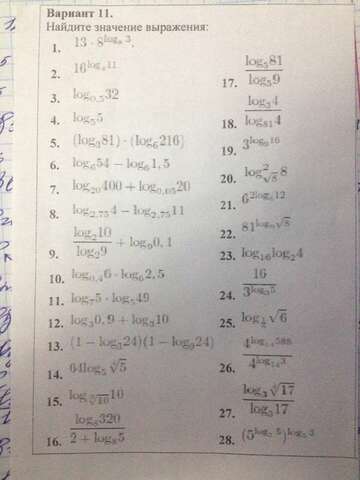 Вариант 11.
Найдите значение выражения:
1. 13 · 8^{log_8 3}.
2. 16^{log_4 11}
3. log_{0,5} 32
4. log_5 5
5. (log_3 81) · (log_6 216)
6. log_6 54 − log_6 1,5
7. log_{20} 400 + log_{0,05} 20
8. log_{2,75} 4 − log_{2,75} 11
9. \frac{log_2 10}{log_2 9} + log_9 0,1
10. log_{0,4} 6 · log_6 2,5
11. log_7 5 · log_5 49
12. log_3 0,9 + log_3 10
13. (1 − log_3 24)(1 − log_8 24)
14. 64 log_5 \sqrt[4]{5}
15. 10
16. \frac{log_8 320}{2 + log_8 5}
17. \frac{log_5 81}{log_5 9}
18. \frac{log_3 4}{log_{81} 4}
19. 3^{log_9 16}
20. log^2_{\sqrt{8}} 8
21. 6^{2log_6 12}
22. 81^{log_9 \sqrt{8}}
23. log_{16} log_2 4
24. \frac{16}{3^{log_3 5}}
25. \sqrt{6}
26. \frac{4^{log_{14} 588}}{4^{log_{14} 3}}
27. 17
28.